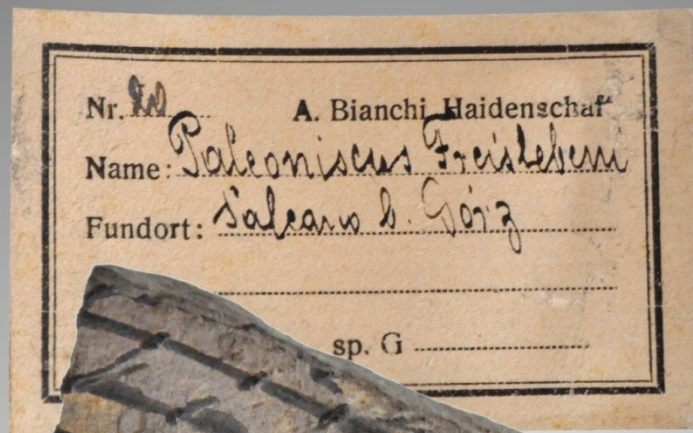 Nr. A. Bianchi, Haidenschaft
Name: Paleoniscus Freislebeni
Fundort: Salcano b. Görz
sp. G